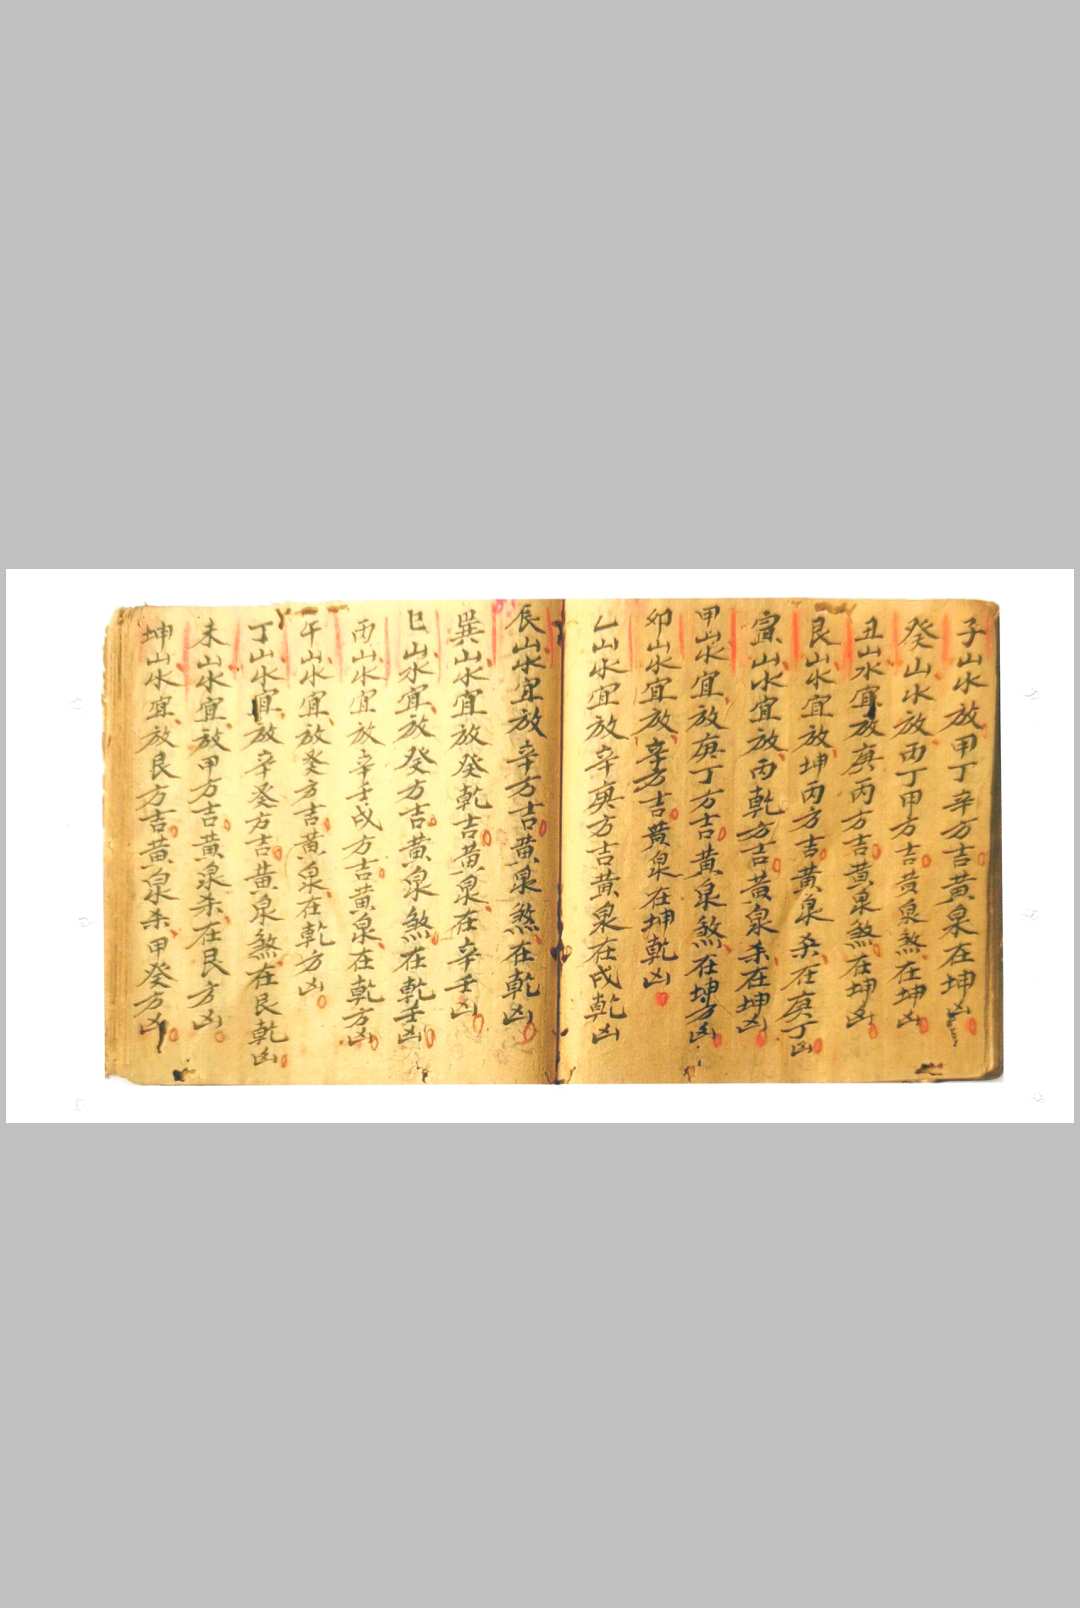 子山水放甲丁辛方吉黃泉在坤凶
癸山水放丙丁甲方吉黃泉煞在坤凶
丑山水宜放庚丙方吉黃泉煞在坤凶
艮山水宜放坤丙方吉黃泉杀在庚丁凶
寅山水宜放丙乾方吉黃泉杀在坤凶
甲山水宜放庚丁方吉黃泉煞在坤方凶
卯山水宜放辛方吉黃泉在坤乾凶
乙山水宜放辛庚方吉黃泉在戌乾凶
辰山水宜放辛方吉黃泉煞在乾凶
巽山水宜放癸乾吉黃泉在辛壬凶
巳山水宜放癸方吉黃泉煞在乾壬凶
丙山水宜放辛壬戌方吉黃泉在乾方凶
午山水宜放癸方吉黃泉在乾方凶
丁山水宜放辛癸方吉黃泉煞在艮乾凶
未山水宜放甲方吉黃泉杀在艮方凶
坤山水宜放艮方吉黃泉杀甲癸方凶